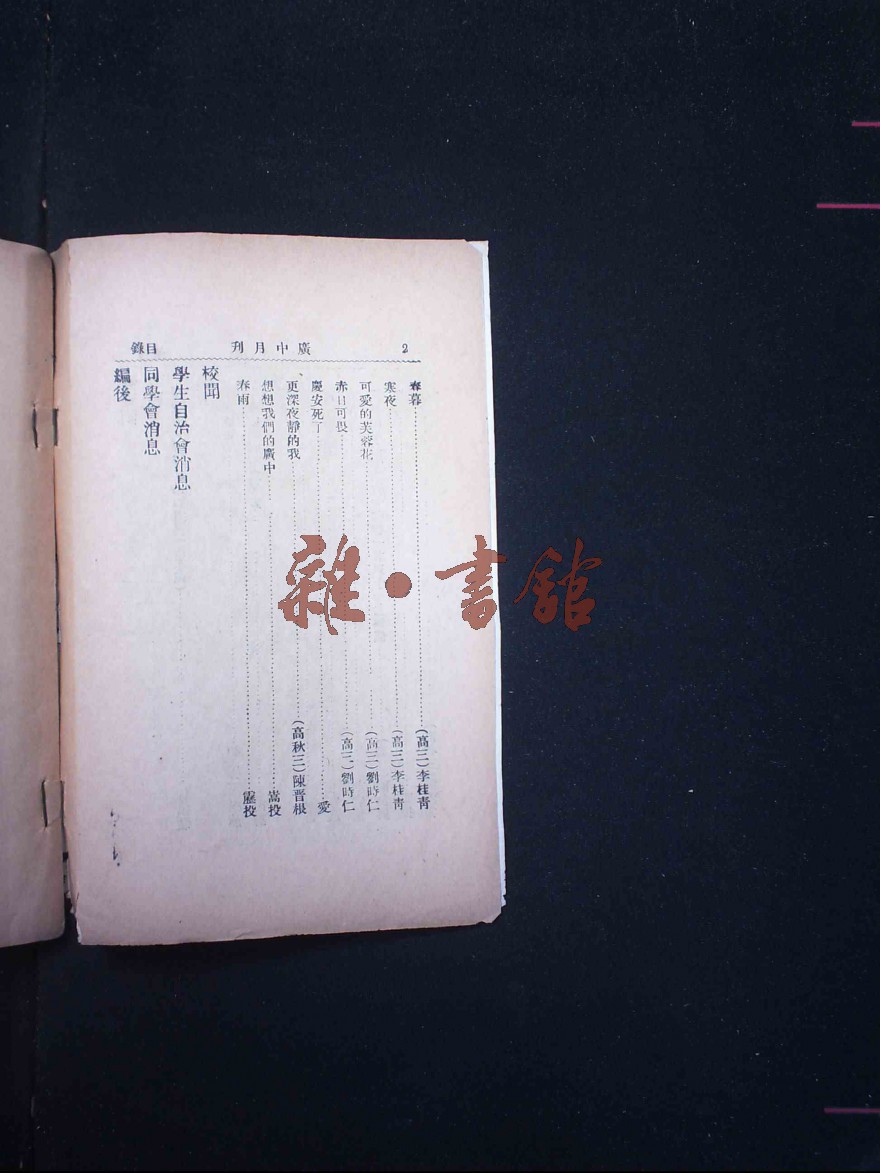 2　廣中月刊　目錄
春暮……(高三)李桂靑
寒夜……(高三)李桂靑
可愛的芙蓉花……(高三)劉時仁
赤日可畏……(高三)劉時仁
慶安死了……愛
更深夜靜的我……(高秋三)陳晋根
想想我們的廣中……嵩投
春雨……投
校聞
學生自治會消息
同學會消息
編後
雜·書館